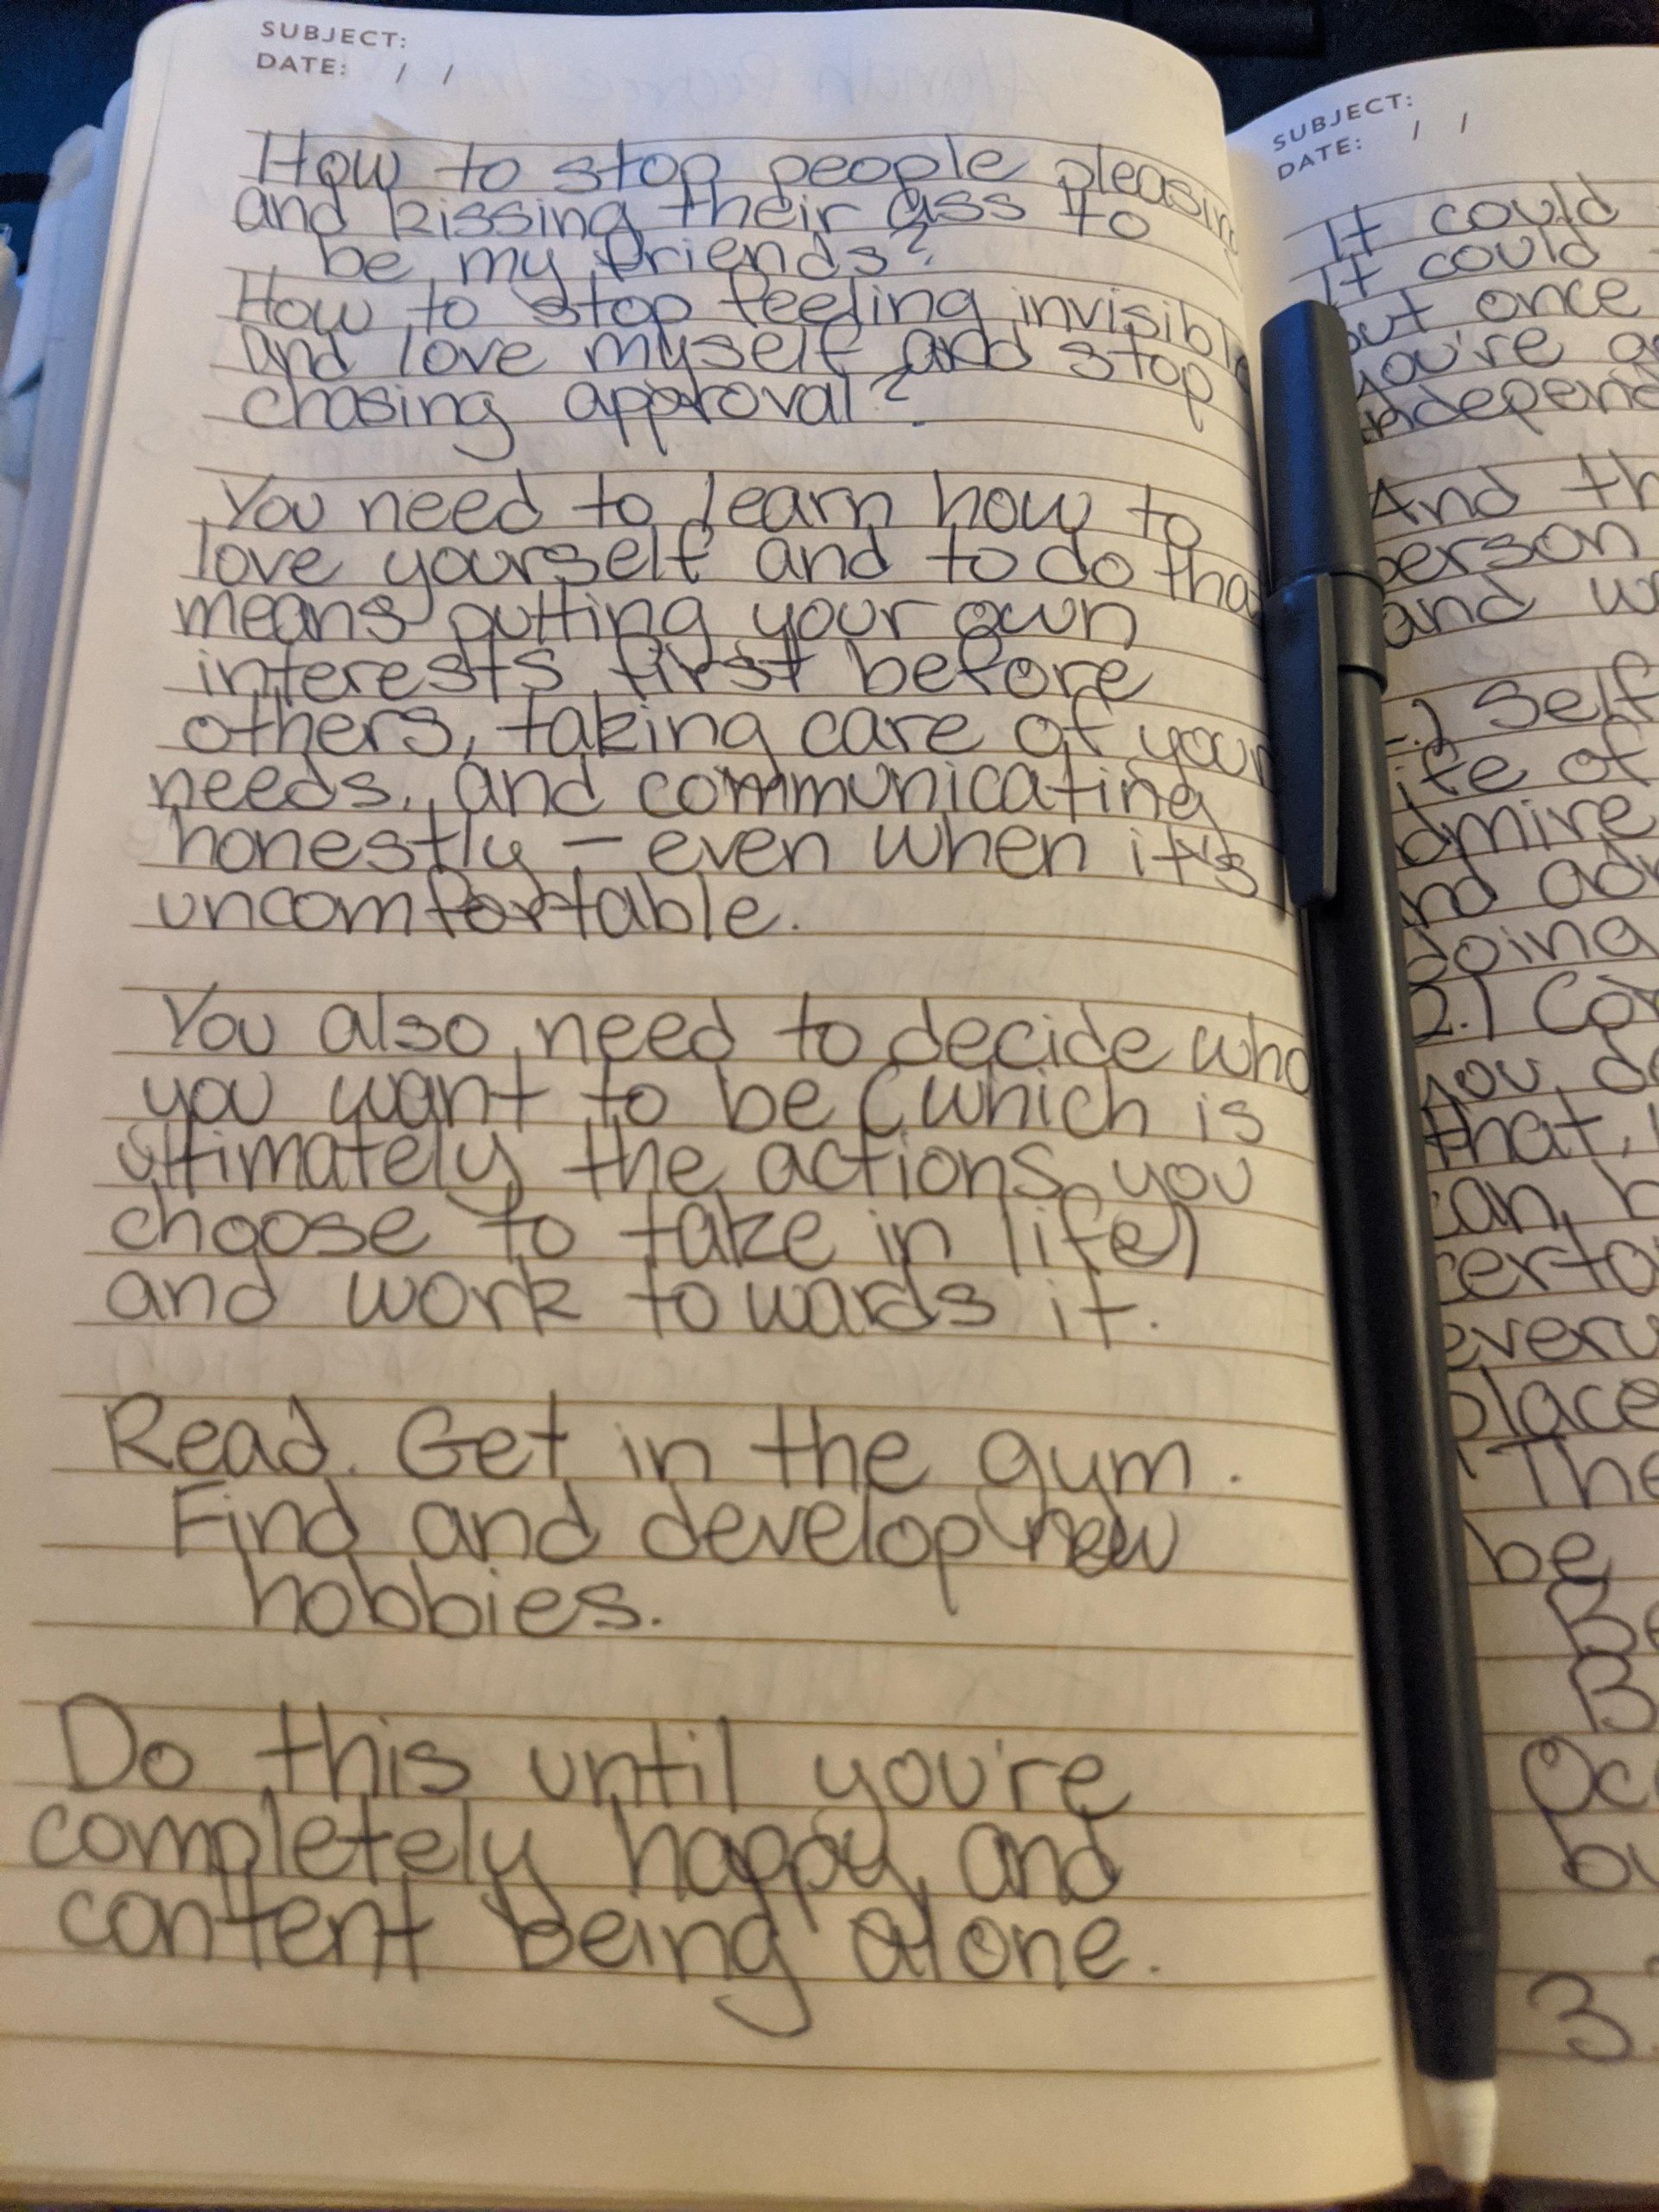 SUBJECT:
DATE: / /
How to stop people pleasing
and kissing their ass to
be my friends?
How to stop feeling invisible
and love myself and stop
chasing approval?
You need to learn how to
love yourself and to do that
means putting your own
interests first before
others, taking care of your
needs, and communicating
honestly – even when it's
uncomfortable.
You also need to decide who
you want to be (which is
ultimately the actions you
choose to take in life)
and work towards it.
Read. Get in the gym.
Find and develop new
hobbies.
Do this until you're
completely happy and
content being alone.
SUBJECT:
DATE: / /
It could
It could
but once
you're
And
person
and
Self
of
doing
2.)
you
that,
place
The
be
3.